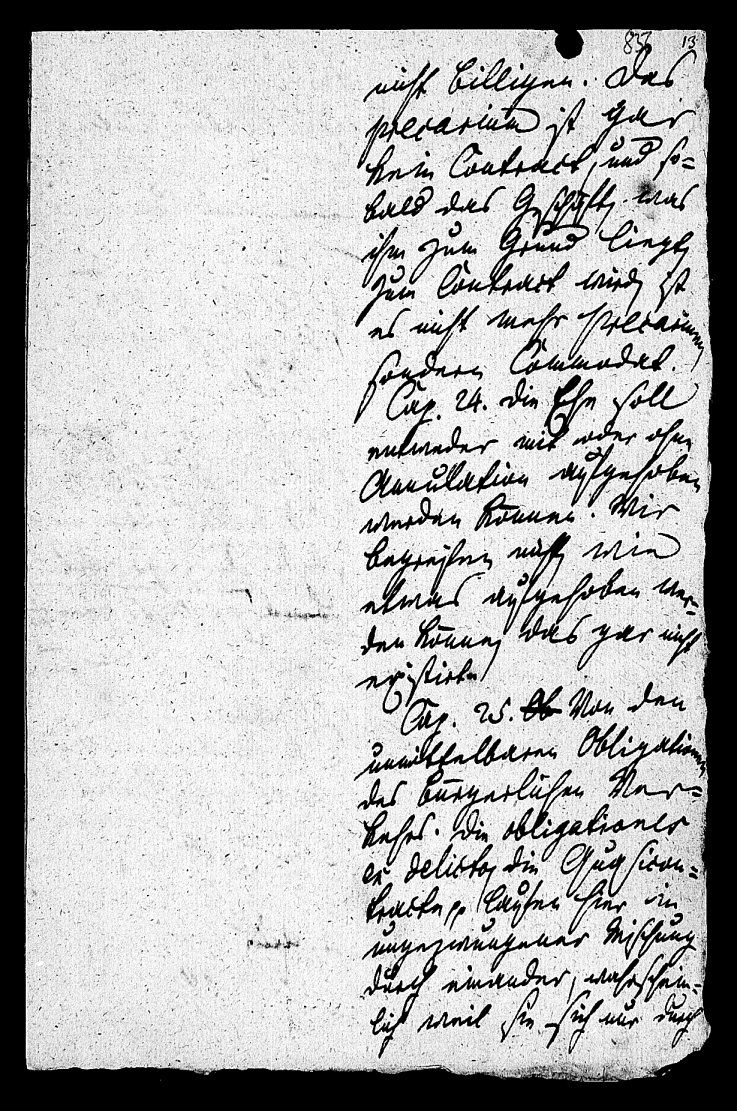 83 13
nicht billigen. Das
precarium ist gar
kein Contract, und so=
bald das Geschäft, was
ihm zum Grund liegt,
zum Contract wird, ist
es nicht mehr Precarium,
sondern Commodat.
Cap. 24. die Ehe soll
entweder mit oder ohne
Annullation aufgehoben
werden können. Wir
begreifen nicht, wie
etwas aufgehoben wer=
den könne, das gar nicht
existirte.
Cap. 25. Von den
unmittelbaren Obligationen
des bürgerlichen Ver=
kehrs. Die obligationes
ex delicto, die Quasicon=
tracte pp laufen hier in
ungezwungener Mischung
durch einander, wahrschein=
lich weil sie sich nur durch